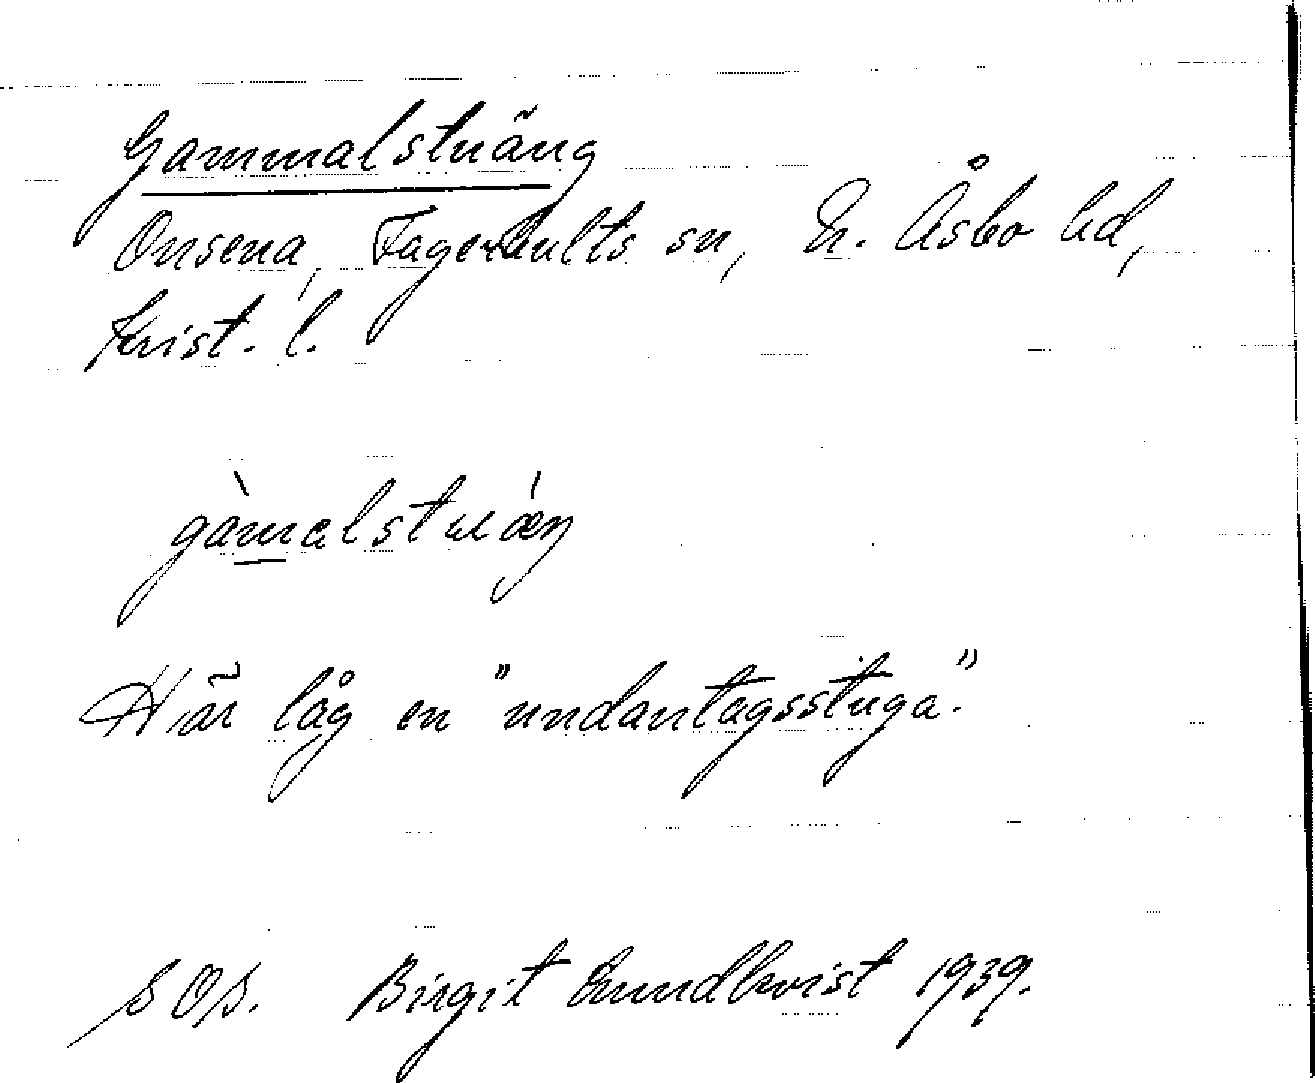 Gammalstuäng
Onsena, Fagerhults sn, N. Åsbo hd,
Krist. l.
gàmalstuǽŋ
Här låg en "undantagsstuga".
SOS. Birgit Lundkvist 1939.